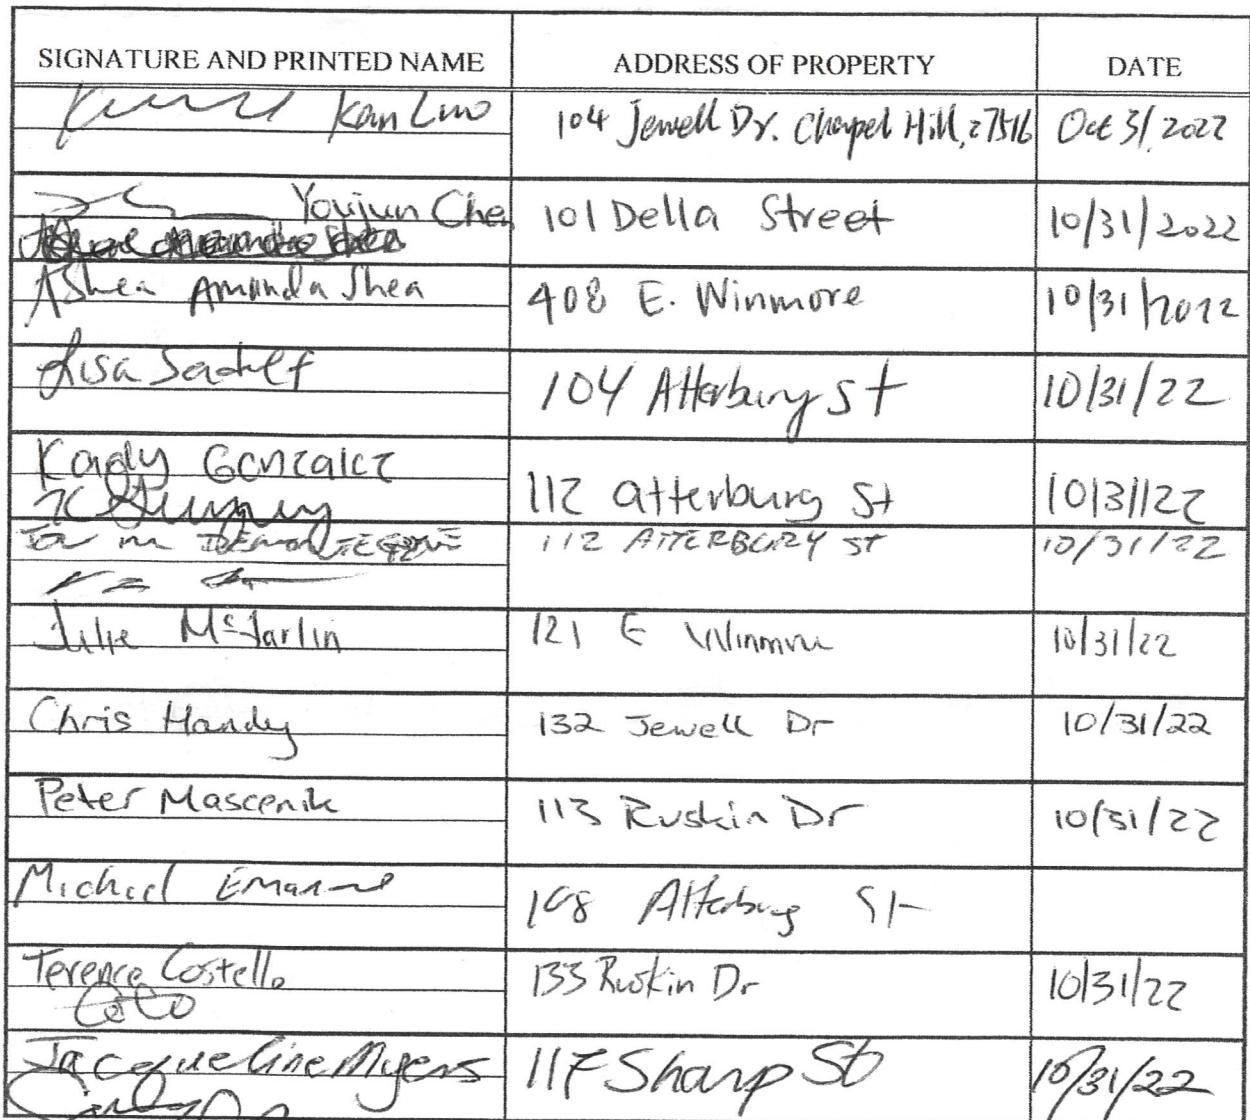 SIGNATURE AND PRINTED NAME ADDRESS OF PROPERTY DATE
Kan Luo 104 Jewell Dr. Chapel Hill, 27516 Oct 31, 2022
Youjun Chen 101 Della Street 10/31/2022
AShea Amanda Shea 408 E. Winmore 10/31/2022
Lisa 104 Atterbury St 10/31/22
Kady Gonzalez 112 atterburg St 10/31/22
112 ATTERBURY ST 10/31/22
Julie McJarlin 121 E Winmore 10/31/22
Chris Handy 132 Jewell Dr 10/31/22
Peter Mascenik 113 Ruskin Dr 10/31/22
Michael 108 Atterbury St
Terence Costello 133 Ruskin Dr 10/31/22
Jacqueline Myers 117 Sharp St 10/31/22